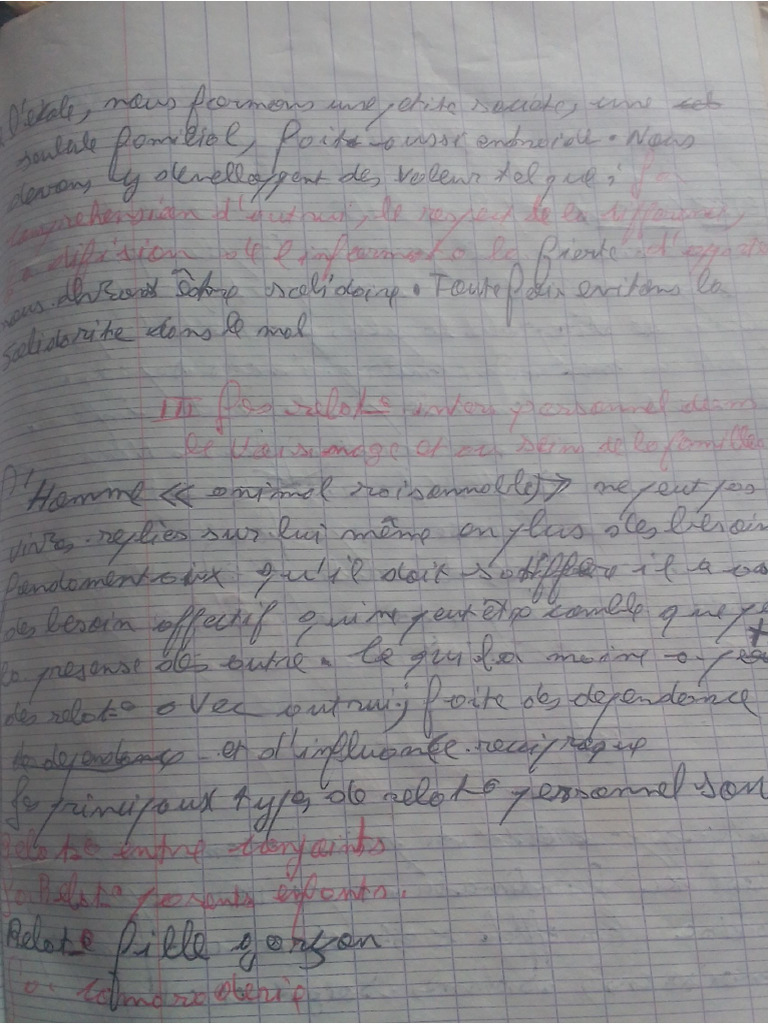 l'école, nous formons une petite societe, une
familial, faite aussi entraide. Nous
devons y develloppent des valeur tel que; la
comprehension d'autrui, le respect de la
la difusion de l'informat° la fierte d'
nous devrons être solidaire. Toute fois evitons la
solidarite dans le mal
III Les relat° inter personnel dans
le voisinage et au sein de la famille
L'Homme << animal raisonnable >> ne peut pas
vivre replies sur lui même en plus des besoin
fondamentaux qu'il doit il a
des besoin affectif qui ne peut être comble que
la presense des autre. Ce qui l'a moine a
des relat° avec autrui; faite des dependence
de dependence et d'influance reciproque
les principaux types de relat° personnel son
Relat° entre conjoints
la Relat° parents enfants.
Relat° fille garson
La camaraderie